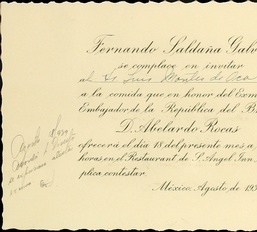 Fernando Saldaña Galv
se complace en invitar
al Sr. Luis Montes de Oca
a la comida que en honor del Exm
Embajador de la Republica del B
D. Abelardo Rocas
ofrecerá el día 18 del presente mes a
horas, en el Restaurant de S. Angel Inn,
plica contestar.
México, Agosto de 193